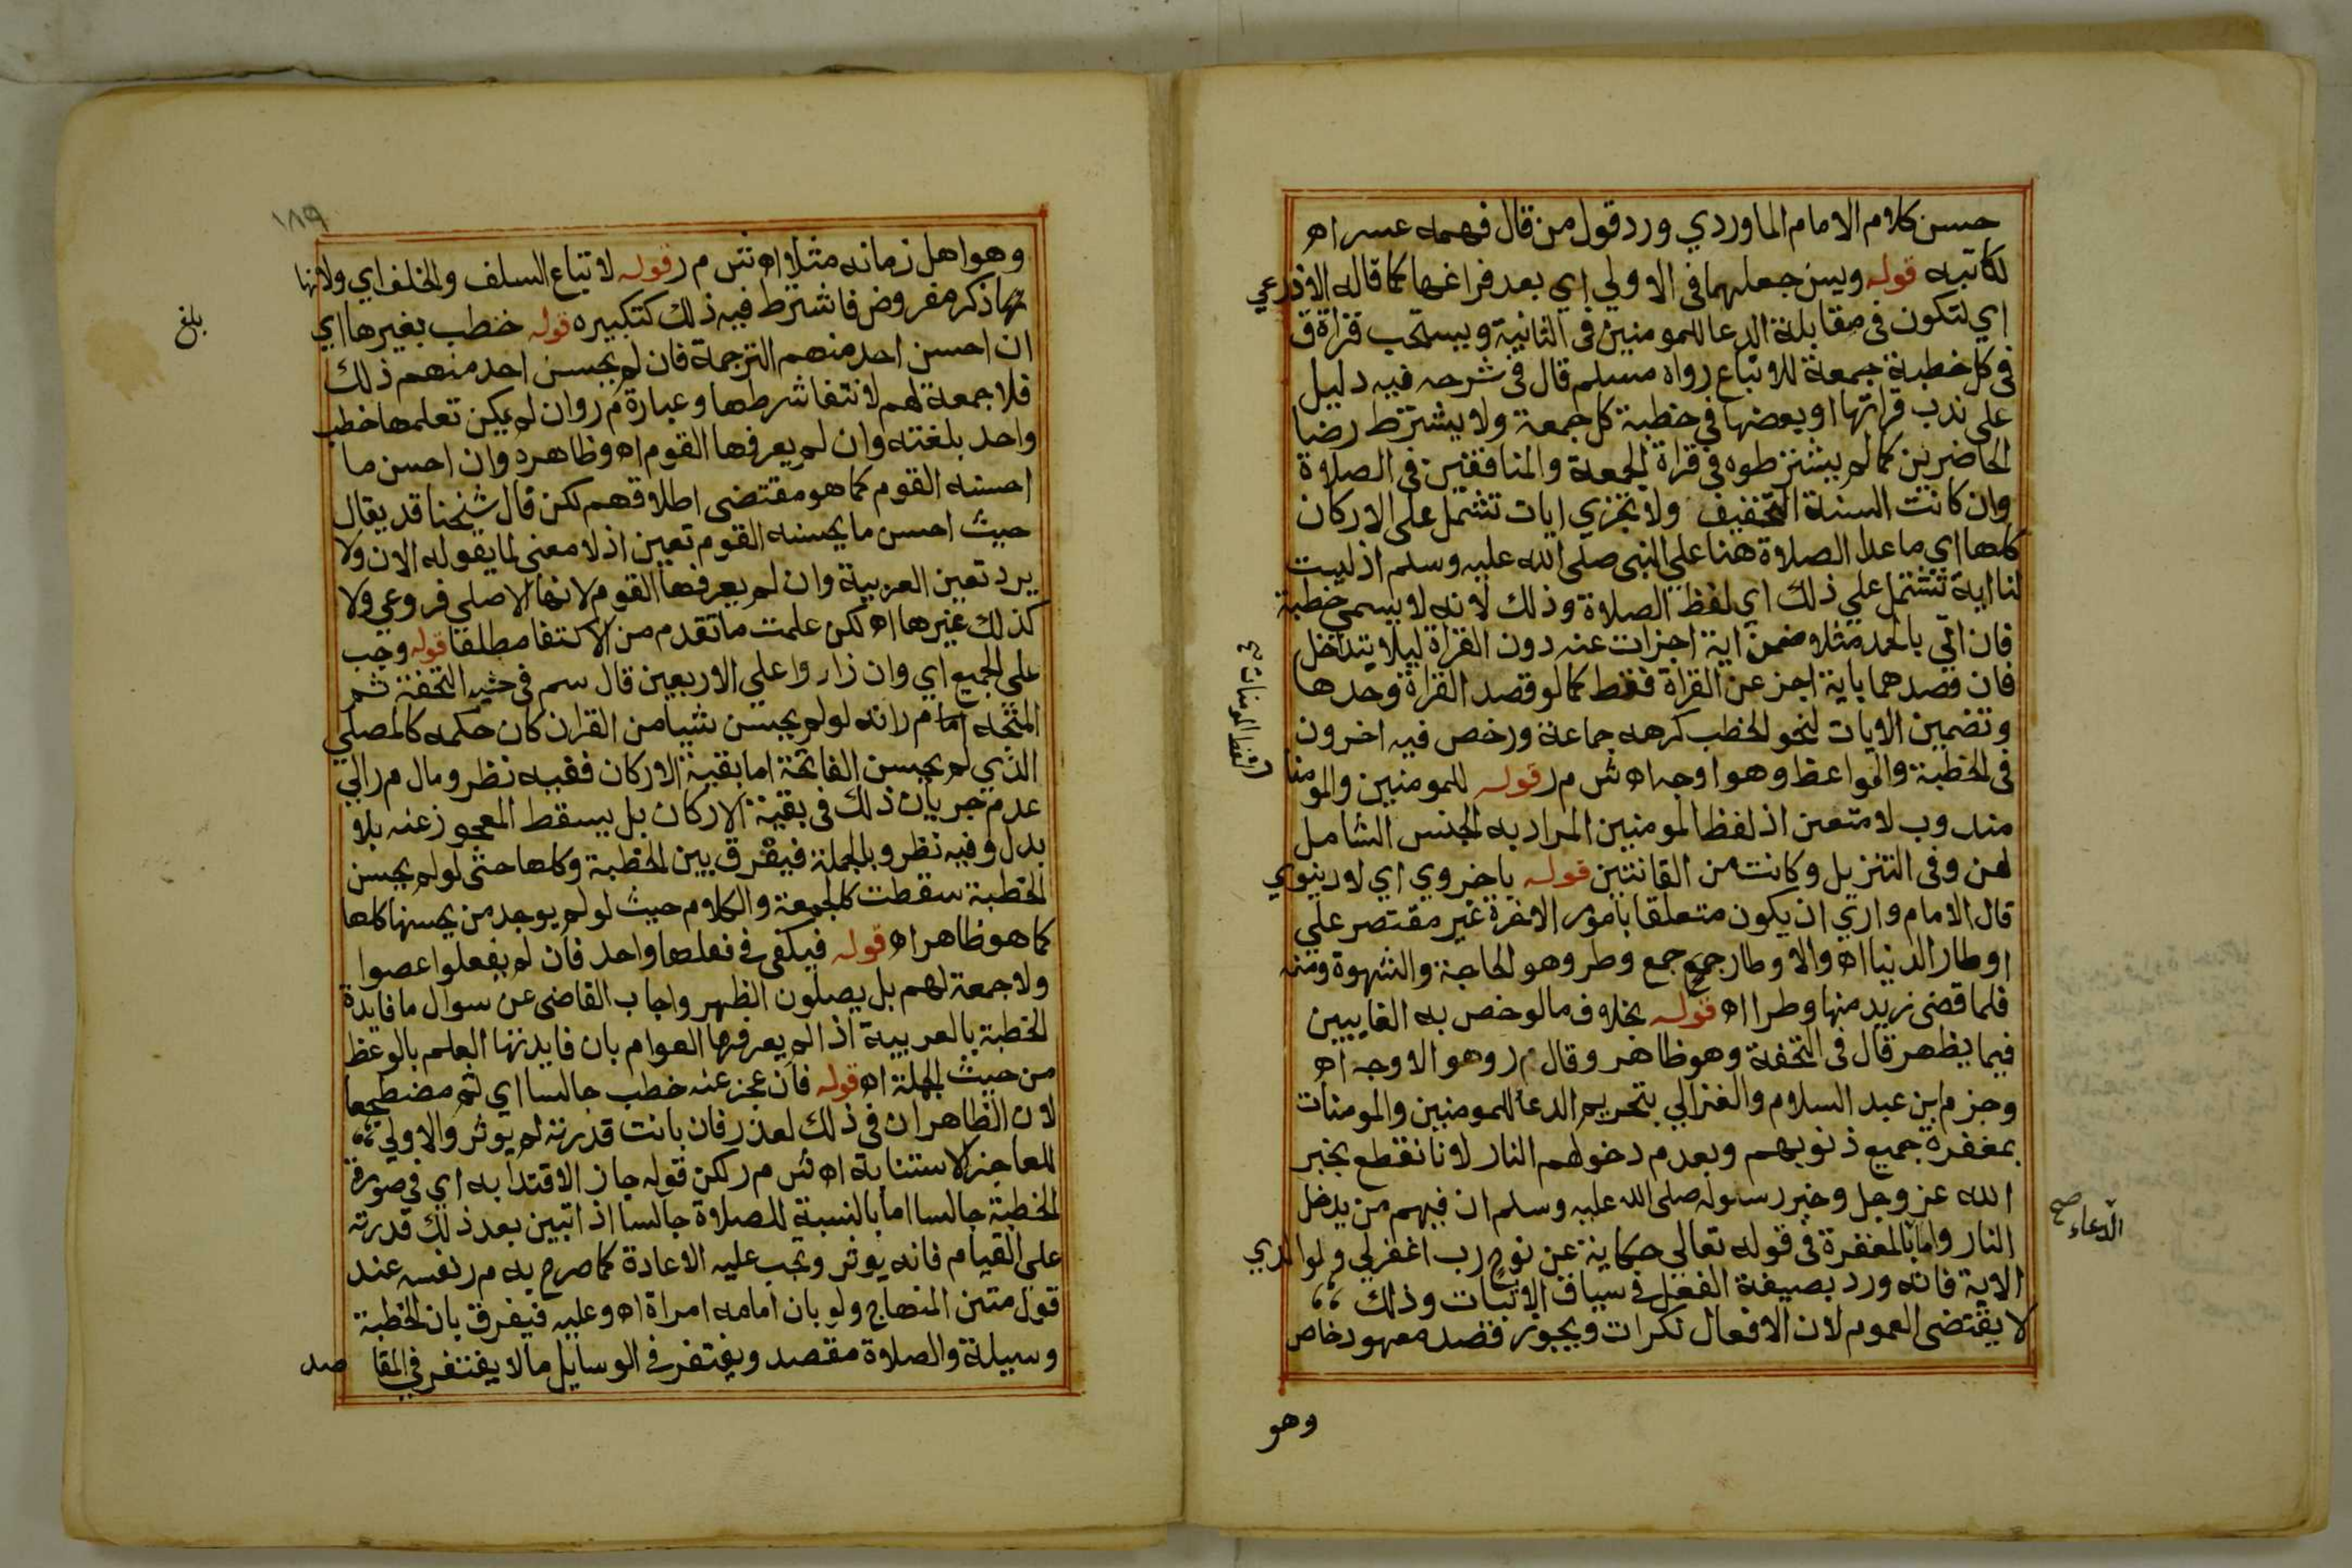 حسن كلام الامام الماوردي ورد قول من قال فهمه عسر اه
لكاتبه قوله ويسن جعلهما فى الاولي اي بعد فراغها كما قاله الاذرعي
اي لتكون فى مقابلة الدعا للمومنين فى الثانية ويستحب قراة ق
فى كل خطبة جمعة للاتباع رواه مسلم قال فى شرحه فيه دليل
على ندب قراتها او بعضها في خطبة كل جمعة ولا يشترط رضا
الحاضرين كما لم يشترطوه فى قراة الجمعة والمنافقين فى الصلاة
وان كانت السنة التخفيف ولا تجزي ايات تشتمل على الاركان
كلها اي ما عدا الصلاة هنا علي النبى صلى الله عليه وسلم اذ ليست
لنا اية تشتمل علي ذلك اي لفظ الصلاة وذلك لانه لا يسمى خطبة
فان اتي بالحمد مثلا ضمن اية اجزات عنه دون القراة ليلا يتداخل
فان قصدهما باية اجز عن القراة فقط كما لو قصد القراة وحدها
وتضمين الايات لنحو الخطب كرهه جماعة ورخص فيه اخرون
فى الخطبة والمواعظ وهو اوجه اه ش م ر قوله للمومنين والمومنا
مندوب لا متعين اذ لفظ المومنين المراد به الجنس الشامل
لهن وفى التنزيل وكانت من القانتين قوله باخروي اي لا دنيوي
قال الامام واري ان يكون متعلقا بامور الاخرة غير مقتصر علي
اوطار الدنيا اه والاوطار جمع وطر وهو الحاجة والشهوة ومنه
فلما قضى زيد منها وطرا اه قوله بخلاف ما لو خص به الغايبين
فيما يظهر قال فى التحفة وهو ظاهر وقال م ر وهو الاوجه اه
وجزم ابن عبد السلام والغزالي بتحريم الدعا للمومنين والمومنات
بمغفرة جميع ذنوبهم وبعدم دخولهم النار لانا نقطع بخبر
الله عز وجل وخبر رسوله صلى الله عليه وسلم ان فيهم من يدخل
النار واما بالمغفرة فى قوله تعالي حكاية عن نوح رب اغفر لي ولوالدي
الاية فانه ورد بصيغة الفعل في سياق الاثبات وذلك
لا يقتضى العموم لان الافعال نكرات ويجوز قصد معهود خاص
وهو
الدعاء صح
وهو اهل زمانه مثلا اه ش م ر قوله لاتباع السلف والخلف اي ولانها
ذكر مفروض فاشترط فيه ذلك كتكبيره قوله خطب بغيرها اي
ان احسن احد منهم الترجمة فان لم يحسن احد منهم ذلك
فلا جمعة لهم لانتفا شرطها وعبارة م ر وان لم يكن تعلمها خطب
واحد بلغته وان لم يعرفها القوم اه وظاهره وان احسن ما
احسنه القوم كما هو مقتضى اطلاقهم لكن قال شيخنا قد يقال
حيث احسن ما يحسنه القوم تعين اذ لا معنى لما يقوله الان ولا
يرد تعين العربية وان لم يعرفها القوم لانها الاصلي فروعي ولا
كذلك غيرها اه لكن علمت ما تقدم من الاكتفا مطلقا قوله وجب
على الجميع اي وان زادوا علي الاربعين قال سم فى التحفة ثم
المتجه م ر انه لو لم يحسن شيا من القران كان حكمه كالمصلي
الذي لم يحسن الفاتحة اما بقية الاركان ففيه نظر ومال م ر الي
عدم جريان ذلك فى بقية الاركان بل يسقط المعجوز عنه بلا
بدل وفيه نظر وبالجملة فيفرق بين الخطبة وكلها حتى لو لم يحسن
الخطبة سقطت كالجمعة والكلام حيث لو لم يوجد من يحسنها كلها
كما هو ظاهر اه قوله فيكفى في فعلها واحد فان لم يفعلوا عصوا
ولا جمعة لهم بل يصلون الظهر واجاب القاضى عن سوال ما فايدة
الخطبة بالعربية اذا لم يعرفها العوام بان فايدتها العلم بالوعظ
من حيث الجملة اه قوله فان عجز عنه خطب جالسا اي ثم مضطجعا
لان الظاهر ان فى ذلك لعذر فان بانت قدرته لم يوثر والاولي
للعاجز الاستنابة اه ش م ر لكن قوله جاز الاقتدا به اي في صورة
الخطبة جالسا اما بالنسبة للصلاة جالسا اذا تبين بعد ذلك قدرته
على القيام فانه يوثر وتجب عليه الاعادة كما صرح به م ر نفسه عند
قول متن المنهاج ولو بان امامه امراة اه وعليه فيفرق بان الخطبة
وسيلة والصلاة مقصد ويغتفر في الوسايل ما لا يغتفر في المقا صد
بلغ
١٨٩